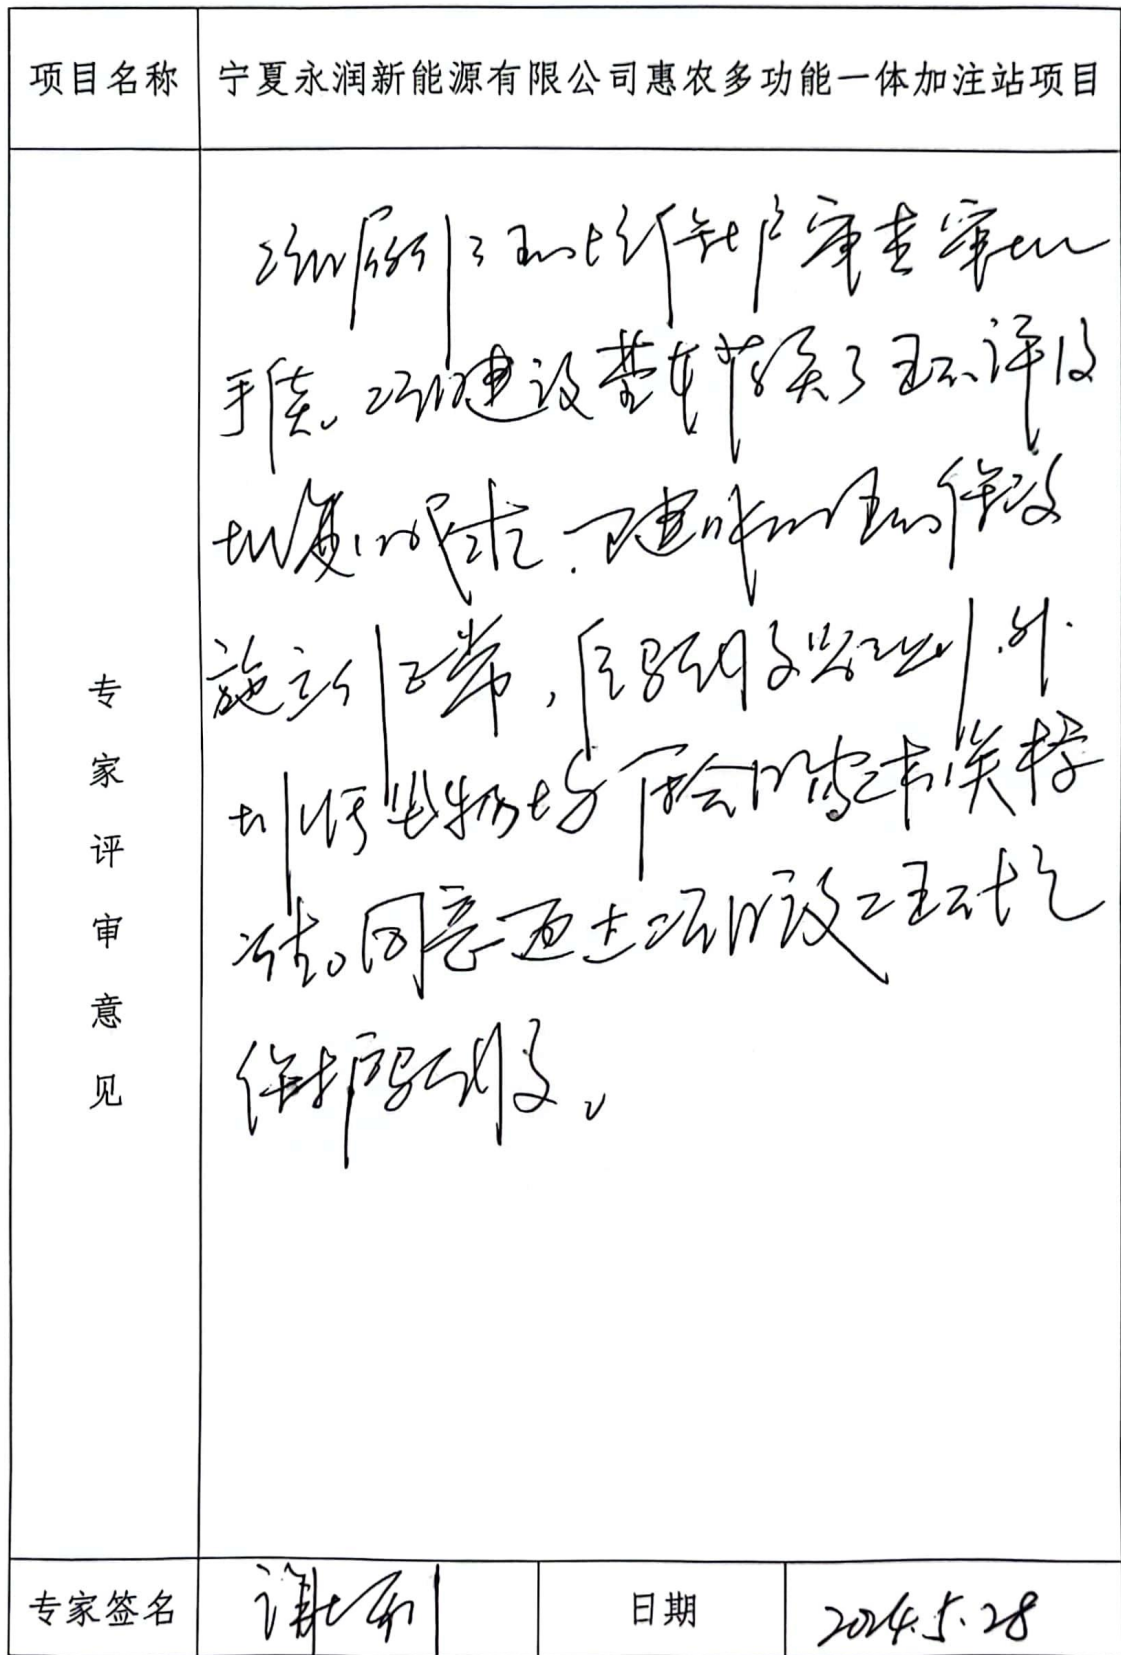 项目名称 宁夏永润新能源有限公司惠农多功能一体加注站项目
专家评审意见
项目履行了环境保护审查审批
手续。项目建设基本落实了环评及
批复的要求。已建成的环保设
施运行正常,经验收监测,外
排污染物均符合国家相关标
准。同意通过项目竣工环境
保护验收。
专家签名 日期 2024.5.28